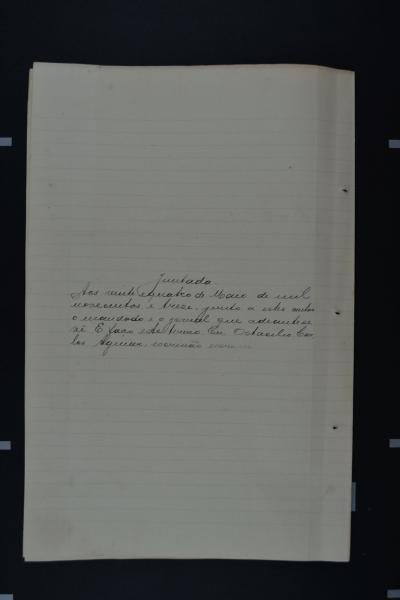 Juntada
Aos vinte e quatro de Maio de mil
novecentos e treze, junto a estes autos
o mandado e o jornal que adiante se
vê. E faço este termo. Eu, Octacilio Car
los Aguiar, escrivão